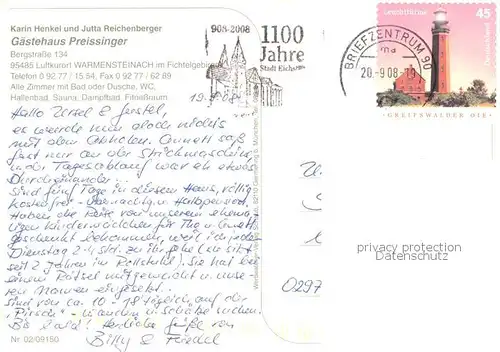 Karin Henkel und Jutta Reichenberger
Gästehaus Preissinger
Bergstraße 134
95485 Luftkurort WARMENSTEINACH im Fichtelgebirge
Telefon 0 92 77 / 15 54, Fax 0 92 77 / 62 89
Alle Zimmer mit Bad oder Dusche, WC,
Hallenbad, Sauna, Dampfbad, Fitneßraum
908-2008
1100
Jahre
Stadt Eichstätt
BRIEFZENTRUM 90
20.-9.08-19
45
Leuchttürme
Deutschland
GREIFSWALDER OIE
Hallo &
es wurde nun doch nichts
mit dem Abholen. Annett saß
fast nur an der Strickmaschine,
der Tagesablauf war eh etwas
Durcheinander...
Sind fünf Tage in diesem Haus, völlig
kostenfrei - Übernachtg. u. Halbpension.
Haben die Reise von unserem ehema-
ligen Kindermädchen für Th. u. Annett
geschenkt bekommen, weil ich jeden
Dienstag 2-4 Std. zu ihr gehe (sie sitzt
seit 2 Jahren im Rollstuhl). Sie hat bei
einem Rätsel mitgemacht u. unse-
ren Namen eingesetzt.
Sind von ca. 10 - 18 täglich "auf der
Pirsch" - wandern u. Schätze suchen.
Bis bald! Herzliche Grüße von
Billy & Friedel
Nr. 02/09150
0297
privacy protection
Datenschutz